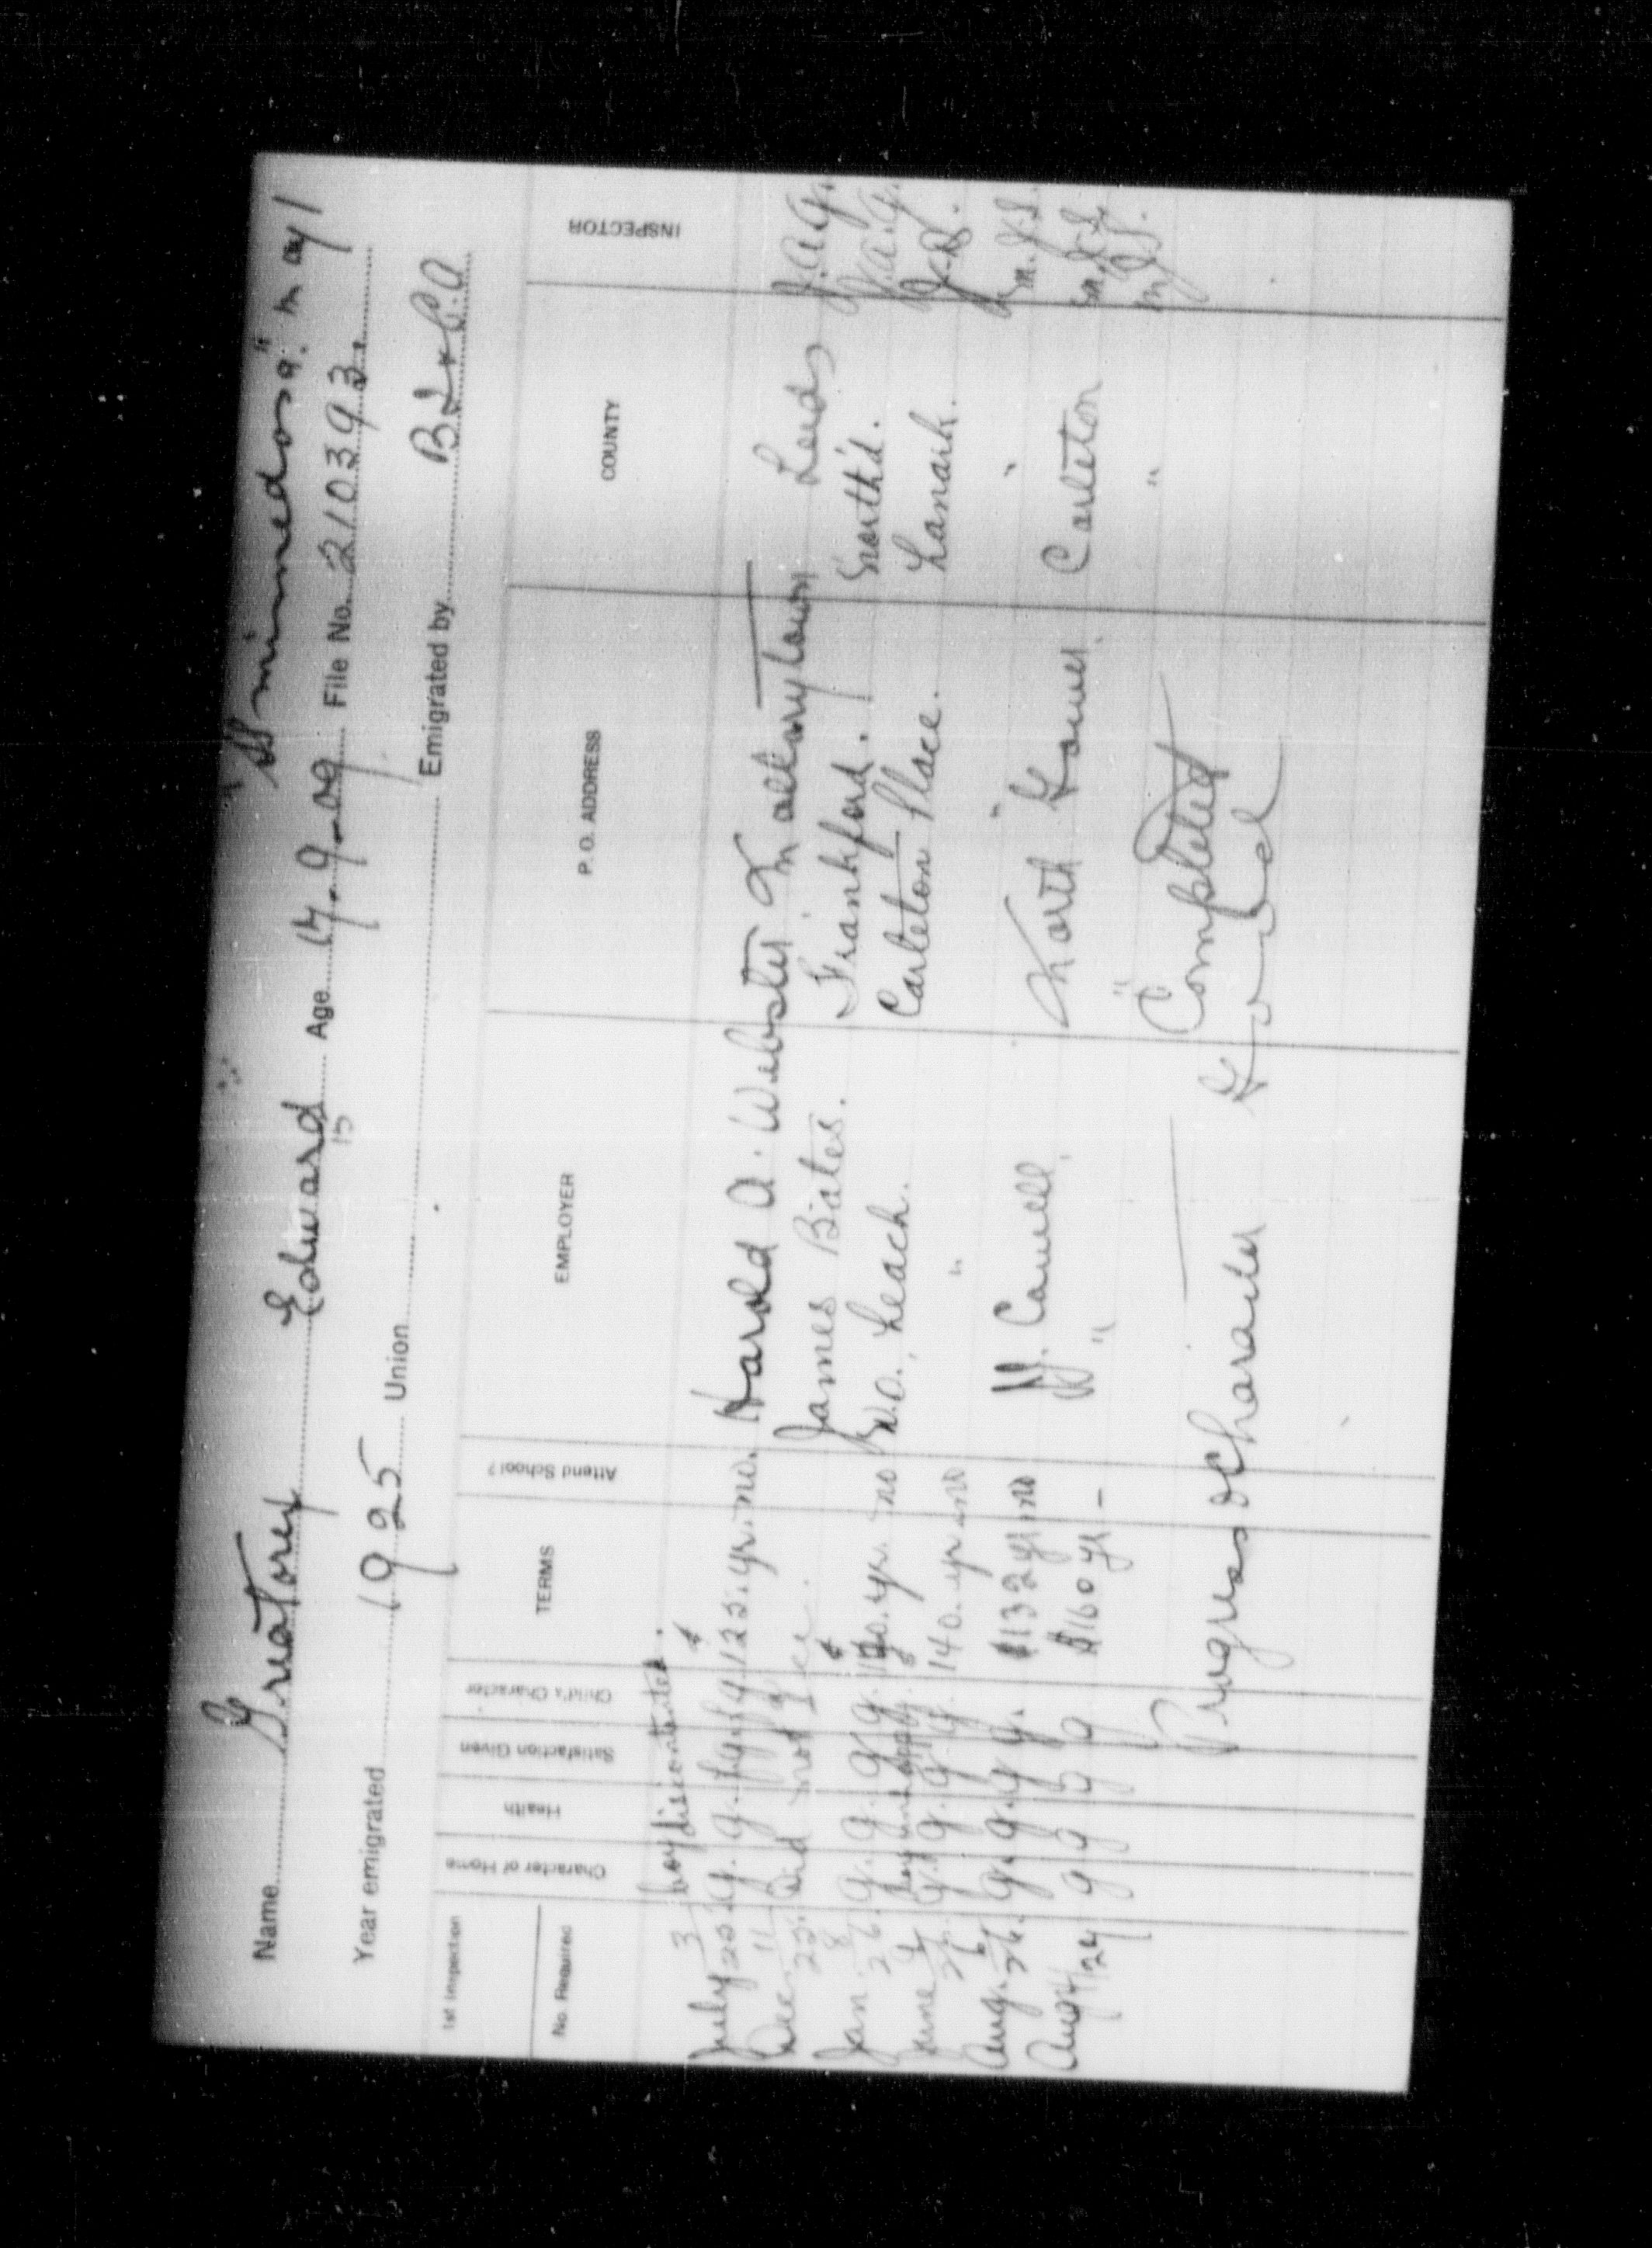 "S.S. minnedosa" May 1
Name Greatorex Edward Age 14-9-09 File No. 210393
15
Year emigrated 1925 Union Emigrated by B.I. & C.A
1st Inspection Character of Home Health Satisfaction Given Child's Character TERMS Attend School? EMPLOYER P. O. ADDRESS COUNTY INSPECTOR
No. Required
boy discontented.
July 3/25 g. g. fg. fg $125. yr. no. Harold A. Webster Mallorytown Leeds J.A.G.
Dec. 11/25. Did not see. James Bates. Frankford. North'd. J.A.G.
Jan. 8/26. g. g. g. g. yr. no W.O. Leach. Carleton Place. Lanark.
boy unhappy.
June 4/26. g. g. g. g. 140. yr no " " "
Aug. 26. g. g. g. g. $132 yr no J. Carswell North Gower Carleton
Aug 4/27 g g g g $160 yr - " " "
Completed
Progress & Character Good